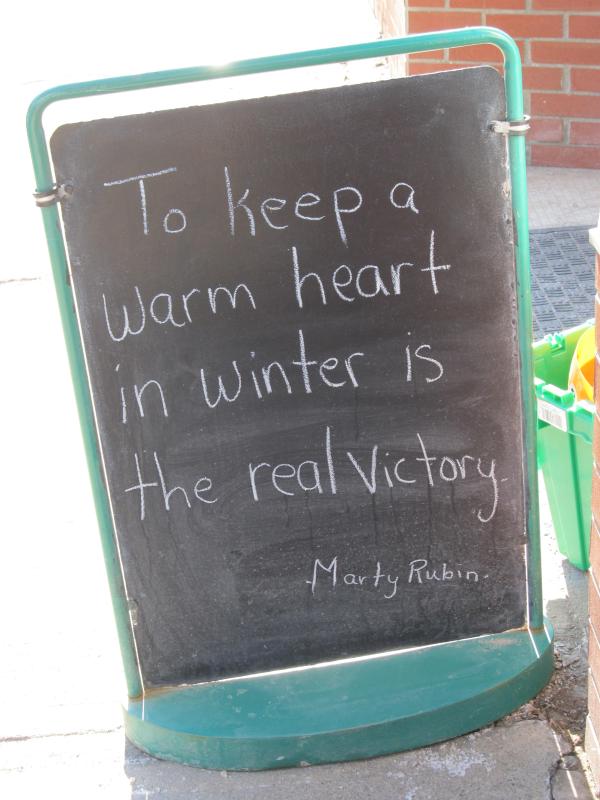 To keep a
warm heart
in winter is
the real victory.
-Marty Rubin-